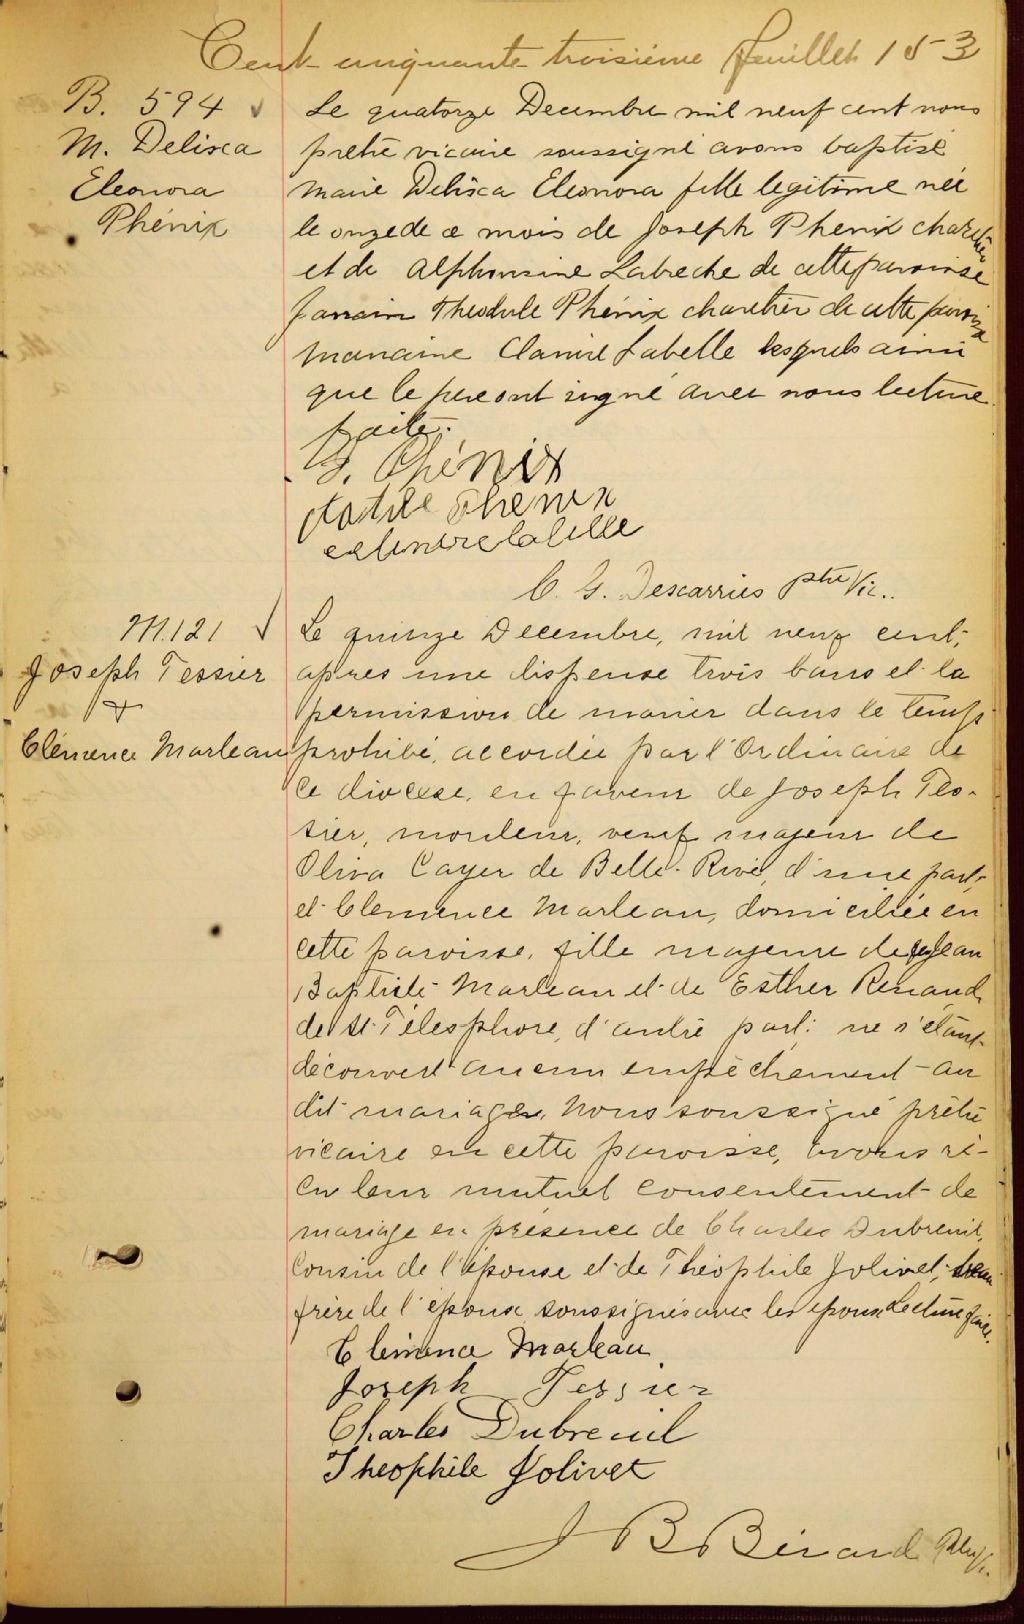 Cent cinquante troisième feuillet 153
B. 594
M. Delisca
Eleonora
Phénix
Le quatorze Decembre mil neuf cent nous
prêtre vicaire soussigné avons baptisé
Marie Delisca Eleonora fille legitime née
le onze de ce mois de Joseph Phenix charetier
et de Alphonsine Labreche de cette paroisse
Parrain Theodule Phénix charetier de cette paroisse
marraine Labelle lesquels ainsi
que le pere ont signé avec nous lecture
faite.
J. Phénix
Phenix
Labelle
C. G. Descarries ptre Vic..
M.121
Joseph Tessier
+
Clémence Marleau
Le quinze Decembre, mil neuf cent,
apres une dispense trois bans et la
permission de marier dans le temps
prohibé, accordée par l'Ordinaire de
ce diocese, en faveur de Joseph Tes-
sier, mouleur, veuf majeur de
Oliva Cayer de Belle-Rive, d'une part,
et Clemence Marleau, domiciliée en
cette paroisse, fille majeure de feu Jean
Baptiste Marleau et de Esther Renaud,
de St. Télesphore, d'autre part; ne s'étant
découvert aucun empêchement au
dit mariage, Nous soussigné prêtre
vicaire en cette paroisse, avons re-
çu leur mutuel consentement de
mariage en présence de Charles Dubreuil,
Cousin de l'épouse et de Théophile Jolivet, beau
frère de l'épouse soussignés avec les époux Lecture faite.
Clémence Marleau
Joseph Tessier
Charles Dubreuil
Theophile Jolivet
J B Bérard